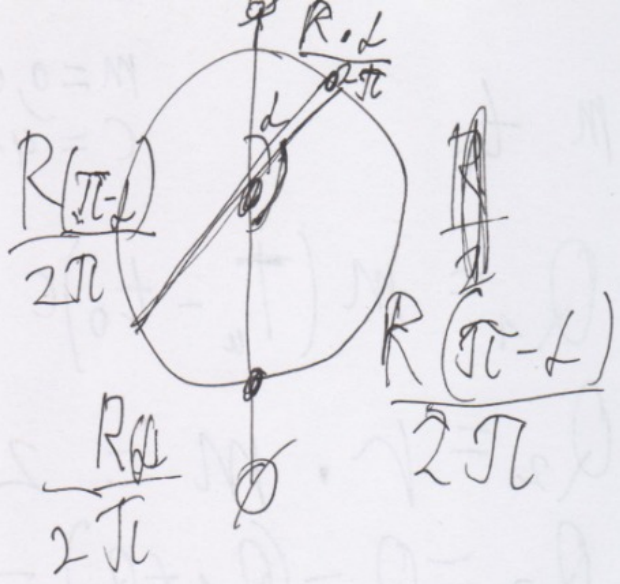 R·α/2π
α
R(π-α)/2π
R(π-α)/2π
Rα/2π